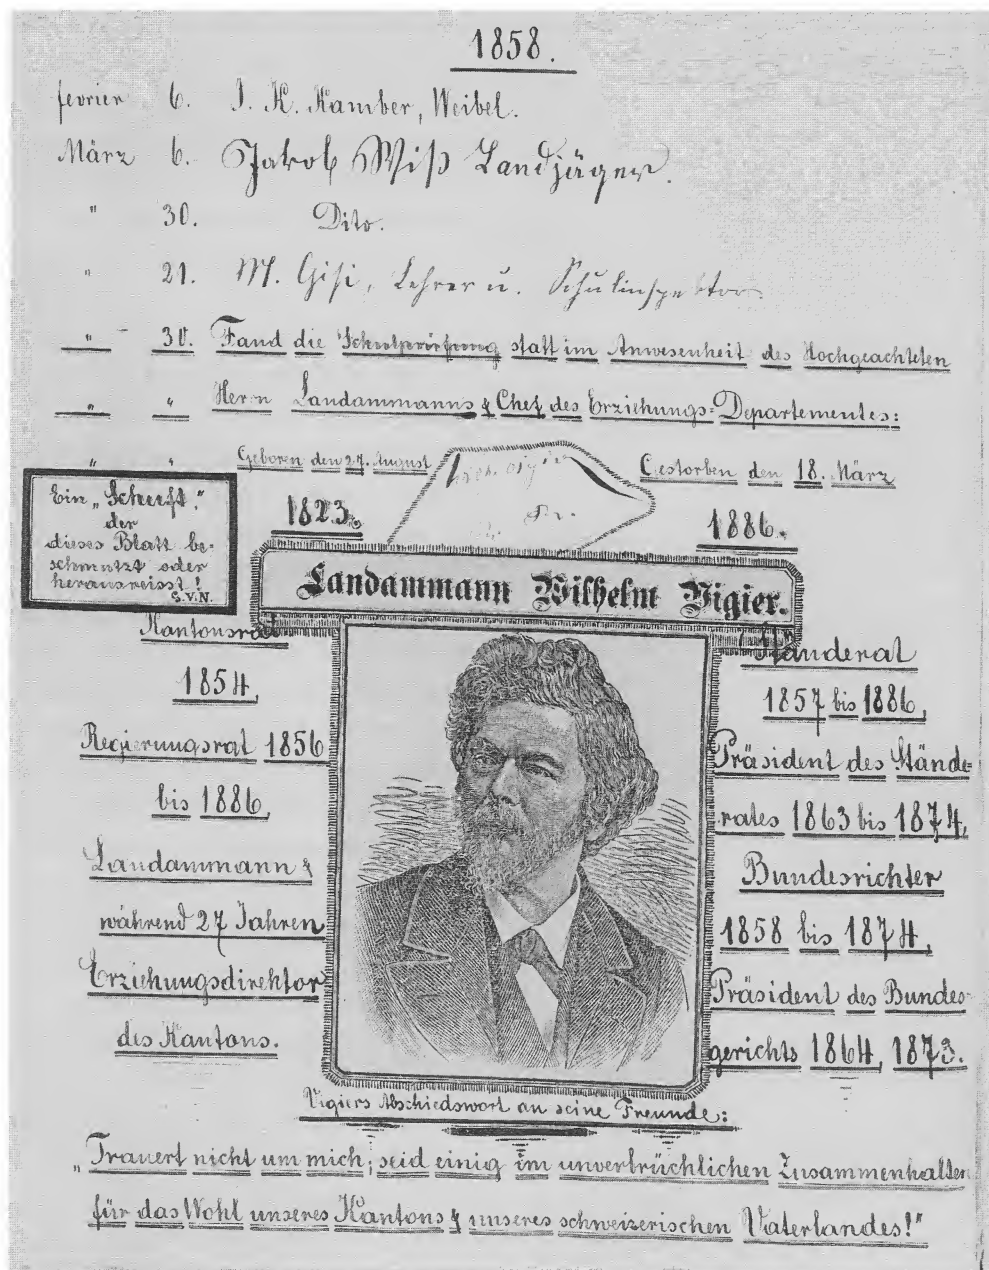 1858.
fevrier 6. J. K. Kamber, Weibel.
März 6. Jakob Wiß Landjäger.
" 30. Dito.
" 21. M. Gisi, Lehrer u. Schulinspektor
" 30. Fand die Schulprüfung statt im Anwesenheit des Hochgeachteten
" " Herrn Landammanns & Chef des Erziehungs-Departementes:
" " Geboren den 27. August
1823.
Gestorben den 18. März
1886.
Ein „Schuft“
der
dieses Blatt be-
schmutzt oder
herausreisst!
G.V.N.
Landammann Wilhelm Vigier.
Kantonsrat
1854,
Regierungsrat 1856
bis 1886,
Landammann &
während 27 Jahren
Erziehungsdirektor
des Kantons.
Ständerat
1857 bis 1886,
Präsident des Stände-
rates 1863 bis 1874,
Bundesrichter
1858 bis 1874,
Präsident des Bundes-
gerichts 1864, 1873.
Vigiers Abschiedswort an seine Freunde:
„Trauert nicht um mich; seid einig im unverbrüchlichen Zusammenhalten
für das Wohl unseres Kantons & unseres schweizerischen Vaterlandes!"